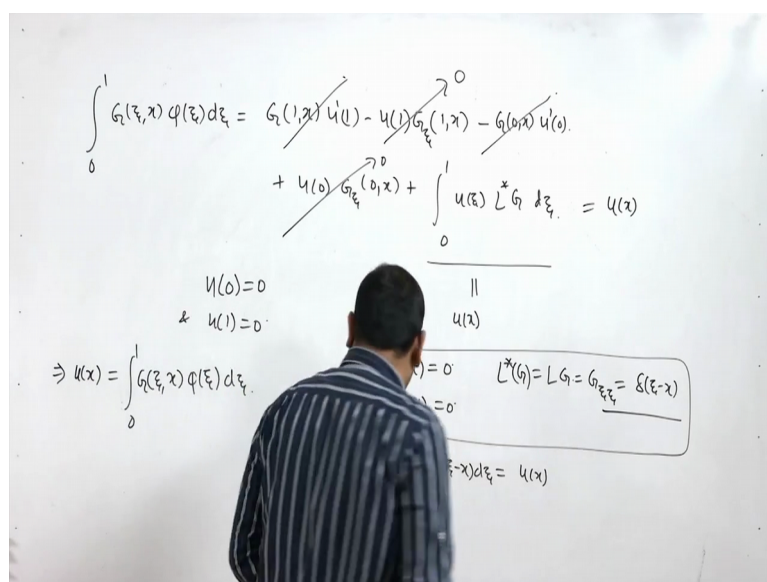 ∫₀¹ G(ξ,x) φ(ξ)dξ = G(1,x) u'(1) - u(1) G_ξ(1,x) - G(0,x) u'(0).
0
+ u(0) G_ξ(0,x) + ∫₀¹ u(ξ) L*G dξ. = u(x)
0
u(0)=0
||
& u(1)=0
u(x)
⇒ u(x) = ∫₀¹ G(ξ,x) φ(ξ)dξ.
)=0 L*(G)=LG=G_ξξ=δ(ξ-x)
)=0
ξ-x)dξ = u(x)